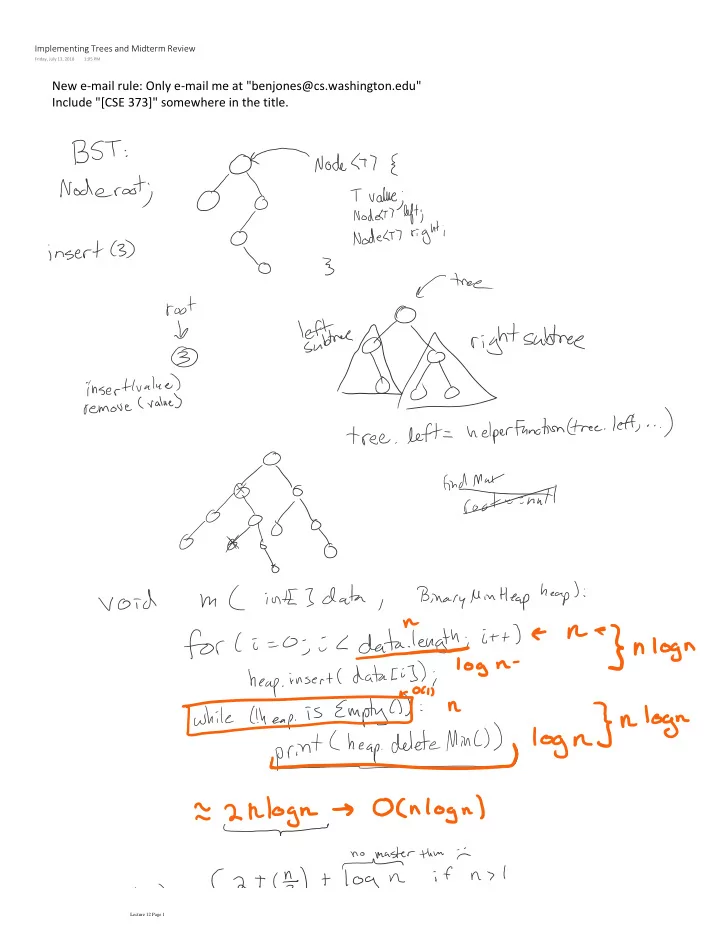 Implementing Trees and Midterm Review
Friday, July 13, 2018 1:05 PM
New e-mail rule: Only e-mail me at "benjones@cs.washington.edu"
Include "[CSE 373]" somewhere in the title.
BST:
Node root;
insert (3)
Node<T> {
T value;
Node<T> left;
Node<T> right;
}
root
3
insert(value)
remove (value)
tree
left
subtree
right subtree
tree. left = helperFunction(tree. left, ...)
find
void m ( int[] data , BinaryMinHeap heap):
n
for (i=0; i < data.length; i++) ← n } n log n
heap.insert( data[i]); log n
while (!heap. is Empty()): O(1) n
print (heap. delete Min()) log n } n log n
≈ 2nlogn → O(nlogn)
no master thm :(
2T(n/2) + log n if n>1
Lecture 12 Page 1